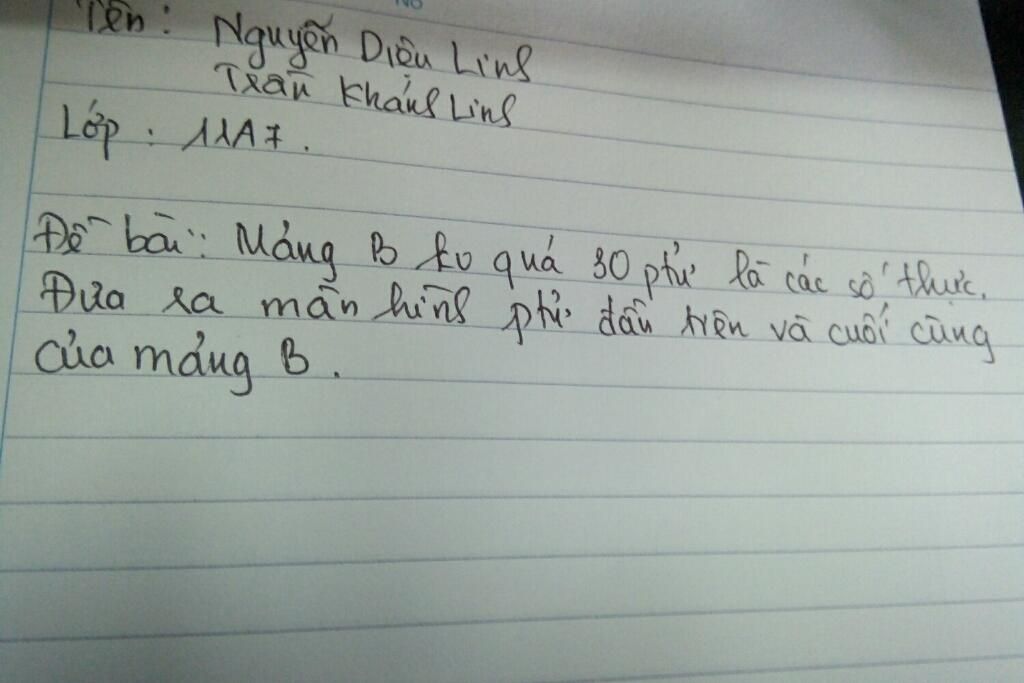 Tên: Nguyễn Diệu Linh
Trần Khánh Linh
Lớp: 11A7.
Đề bài: Mảng B ko quá 30 ptử là các số thực.
Đưa ra màn hình ptử đầu tiên và cuối cùng
của mảng B.